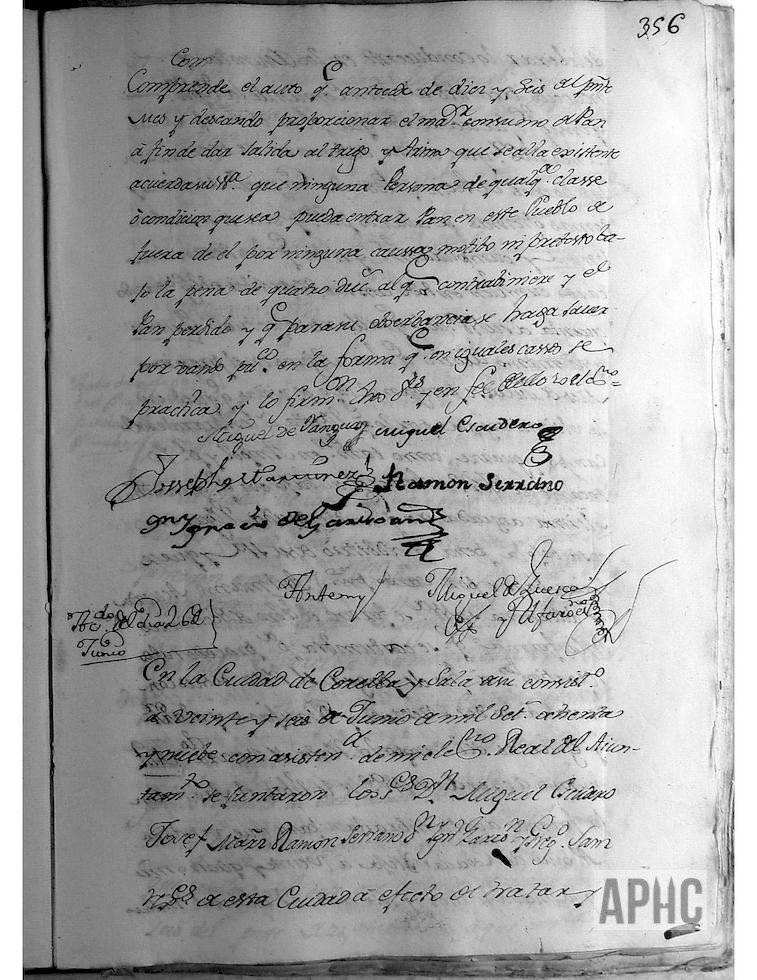 356
Com
Comprende el auto q antecede de diez y seis del pnte
Mes y deseando proporcionar el maor consumo de Pan
à fin de dar salida al trigo y Arina que se alla existente
acuerda su Sa. que ninguna Persona de qualqe. classe
ò condicion que sea pueda entrar Pan en este Pueblo de
fuera de el por ninguna caussa motibo ni pretesto ba-
jo la pena de quatro Duc. al q contrabiniere y el
Pan perdido y q para su obserbancia se haga saver
por vando puco. en la forma q en iguales casos se
practica y lo firmon. sus Ss. y en fee de ello yo el Sno=
Miguel de Miguel Escudero
Josseph Martinez Ramon Serrano
Ignacio de
Antemy Miguel de Luesca
y Alfaro
Acdo. del dia 26 de
Junio
En la Ciudad de Corella y Sala de su Consisto.
à veinte y seis de Junio de mil Sett. ochenta
y nuebe con asistena. de mi el Ssno. Real del Aiun-
tamto. se juntaron los Ss. Dn Miguel
Josef Marz Ramon Serrano
de esta Ciudad à efecto de tratar y
APHC